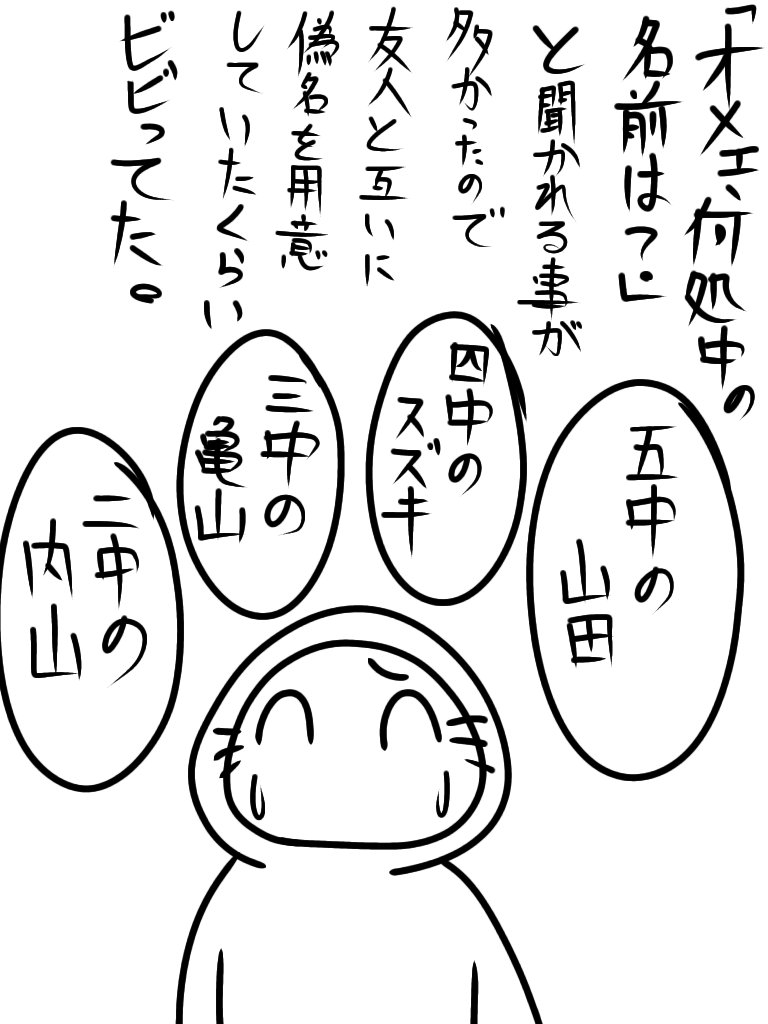 「オメェ、何処中の
名前は？」
と聞かれる事が
多かったので
友人と互いに
偽名を用意
していたくらい
ビビってた。
五中の
山田
四中の
スズキ
三中の
亀山
二中の
内山